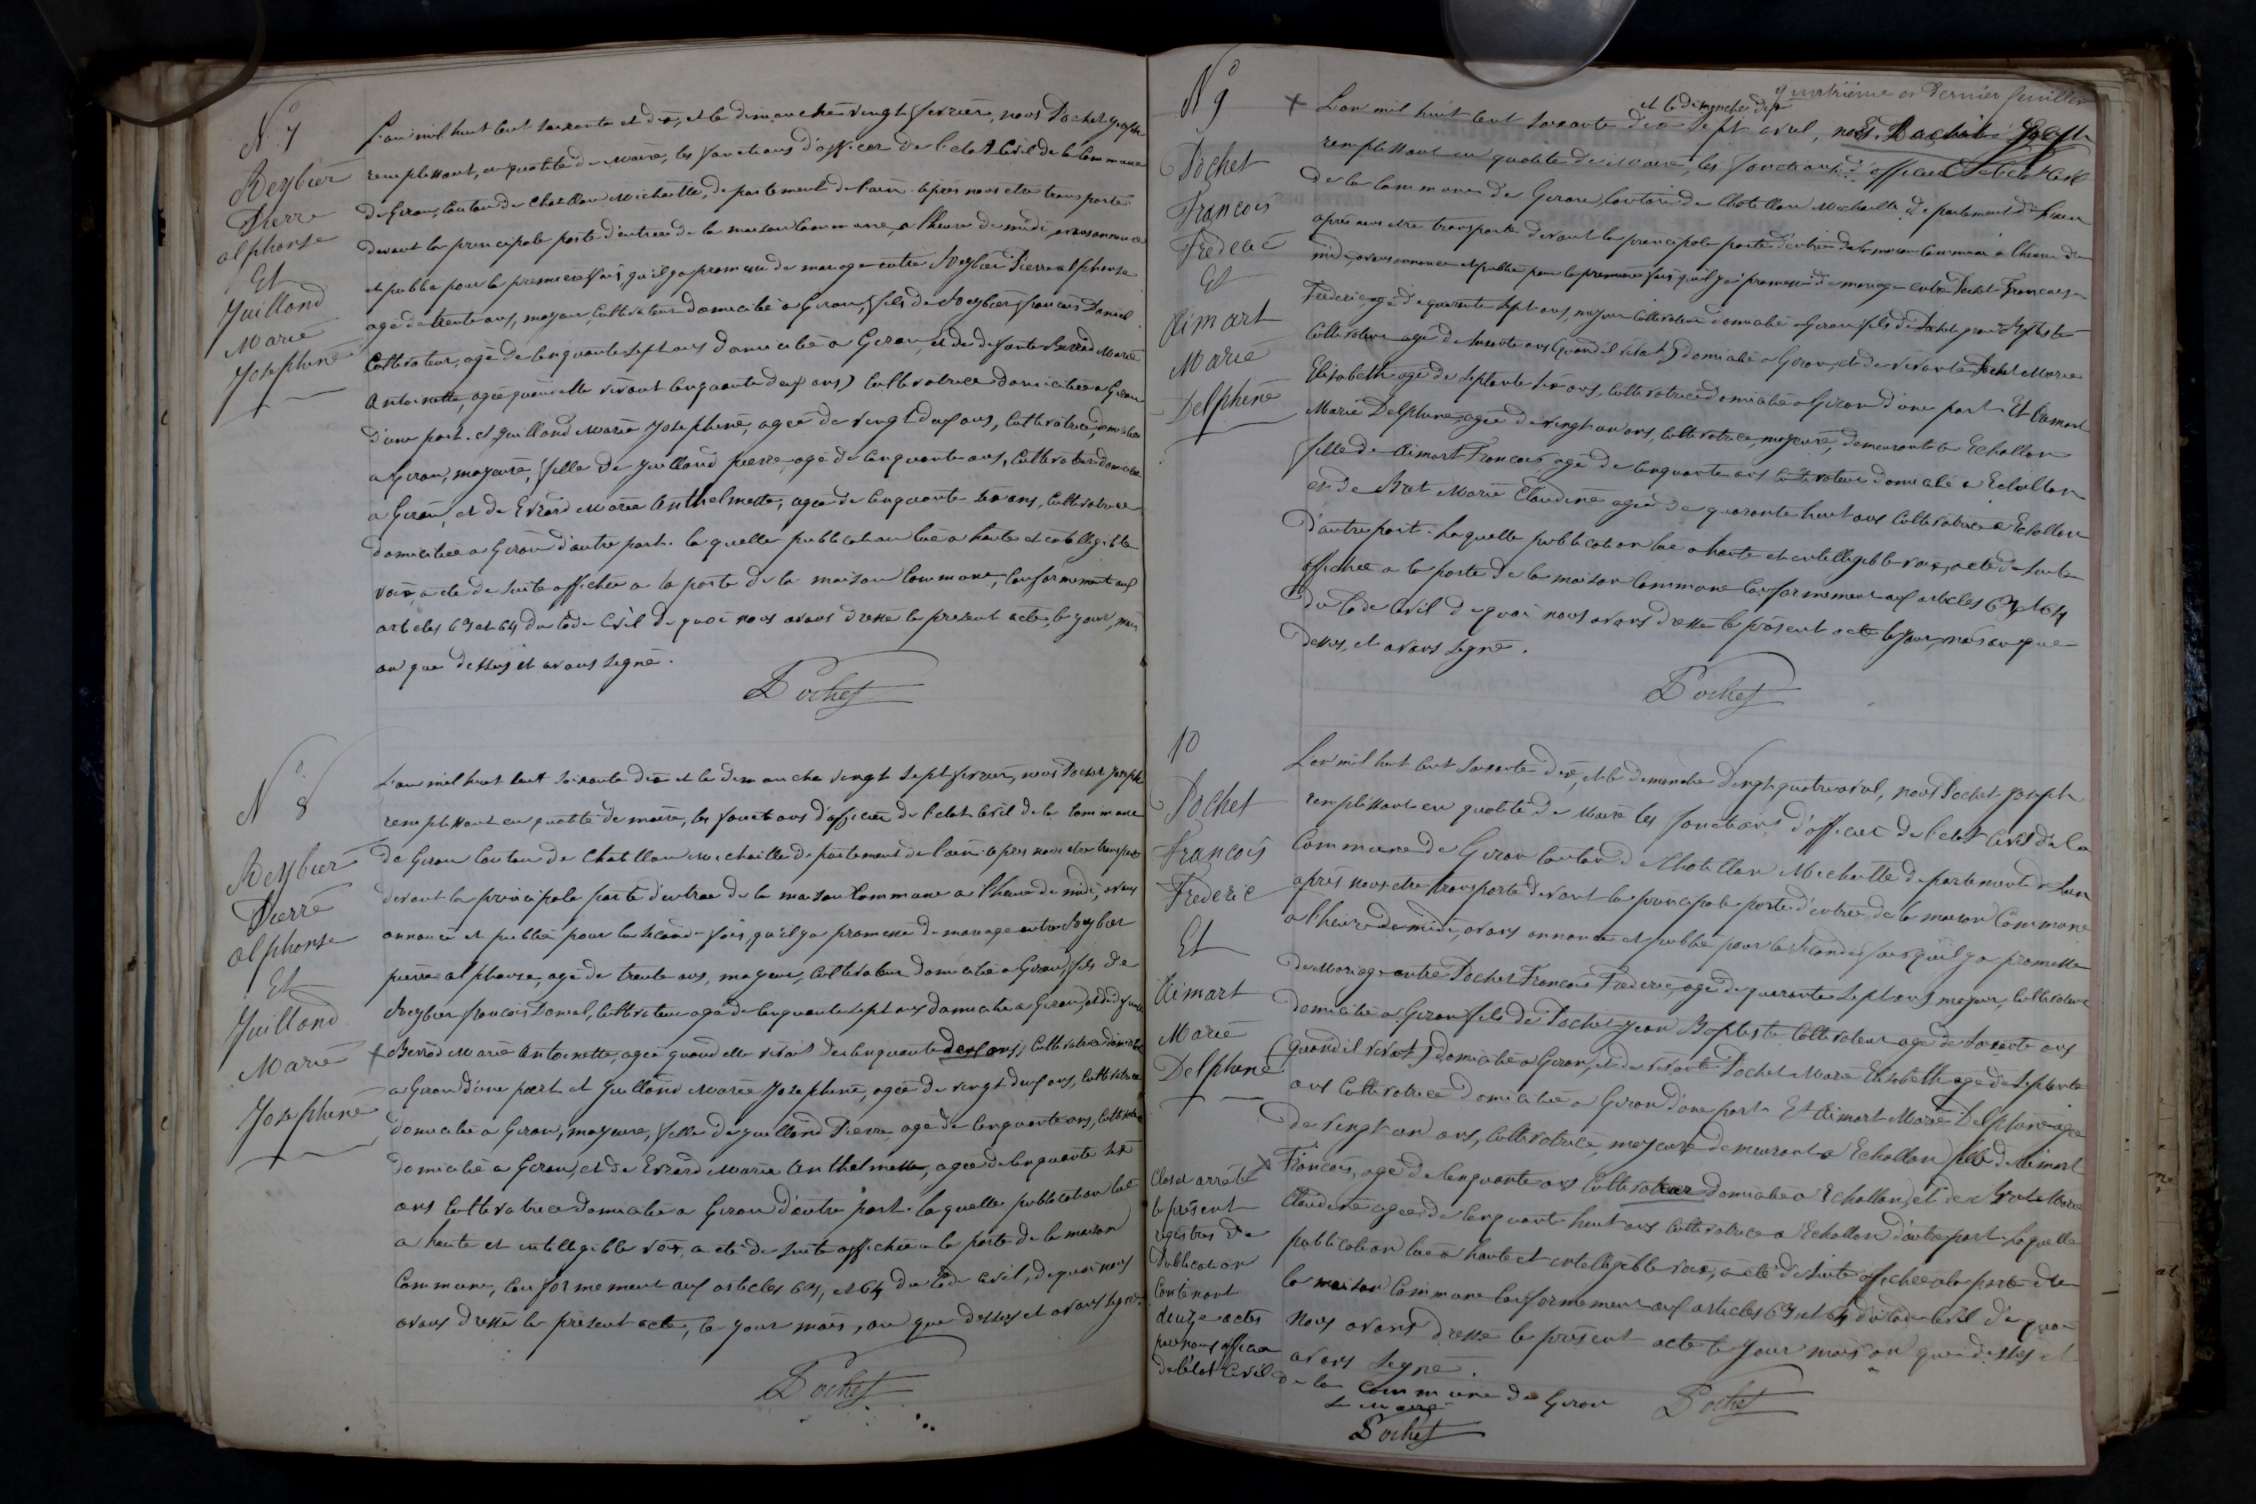 N° 7
Reybier
Pierre
alphonse
Et
Juilland
Marie
Josephine
L'an mil huit cent soixante et dix, et le dimanche vingt fevrier, nous Pochet joseph
remplissant, en qualité de maire, les fonctions d'officier de l'etat Civil de la Commune
de Giron, Canton de Chatillon Michaille, departement de l'ain. après nous etre transporté
devant la principale porte d'entree de la maison Commune, a l'heure de midi, avons annoncé
et publié pour la premiere fois, qu'il y a promesse de mariage entre Reybier Pierre alphonse
agé de trente ans, majeur, Cultivateur domicilié a Giron, fils de Reybier françois Daniel
Cultivateur, agé de Cinquante sept ans domicilié a Giron, et de defunte Marie
Antoinette, agée quand elle vivait Cinquante deux ans) Cultivatrice domiciliée a Giron
d'une part. et Juilland Marie Josephine, agée de vingt deux ans, Cultivatrice, domiciliée
a Giron, majeure, fille de Juilland pierre, agé de Cinquante ans, Cultivateur domicilié
a Giron, et de Evrard Marie Anthelmette, agée de Cinquante six ans, Cultivatrice
domiciliée a Giron d'autre part. la quelle publication lue a haute et intelligible
voix, a eté de suite affichée a la porte de la maison Commune, Conformement aux
articles 63 et 64 du Code Civil de quoi nous avons dressé le present acte, le jour, mois
an que dessus et avons signé.
Pochet
N° 8
Reybier
Pierre
alphonse
Et
Juilland
Marie
Josephine
L'an mil huit cent soixante dix et le dimanche vingt sept fevrier, nous Pochet joseph
remplissant en qualité de maire, les fonctions d'officier de l'etat Civil de la Commune
de Giron Canton de Chatillon Michaille departement de l'ain. après nous etre transporté
devant la principale porte d'entree de la maison Commune a l'heure de midi, avons
annoncé et publié pour la seconde fois, qu'il y a promesse de mariage entre Reybier
pierre alphonse, agé de trente ans, majeur, Cultivateur domicilié a Giron, fils de
Reybier françois Daniel, Cultivateur agé de Cinquante sept ans domicilié a Giron, et de defunte
Marie Antoinette, agée quand elle vivait de Cinquante deux ans, Cultivatrice domiciliée
a Giron d'une part et Juilland Marie Josephine, agée de vingt deux ans, Cultivatrice
domiciliée a Giron, majeure, fille de Juilland Pierre, agé de Cinquante ans, Cultivateur
domicilié a Giron, et de Evrard Marie Anthelmette, agée de Cinquante six
ans Cultivatrice domiciliée a Giron d'autre part. la quelle publication lue
a haute et intelligible voix, a eté de suite affichée a la porte de la maison
Commune, Conformement aux articles 63, et 64 du Code Civil, de quoi nous
avons dressé le present acte, le jour mois, an que dessus et avons signé.
Pochet
N° 9
Pochet
François
Frederic
Et
Aimart
Marie
Delphine
quatrième et dernier feuillet
et le dimanche dix
L'an mil huit cent soixante dix sept avril, nous Pochet Joseph
remplissant en qualité de maire, les fonctions d'officier de l'etat Civil
de la Commune de Giron, Canton de Chatillon Michaille, departement de l'ain
après nous etre transporté devant la principale porte d'entrée de la maison Commune a l'heure de
midi, avons annoncé et publié pour la premiere fois, qu'il y a promesse de mariage entre Pochet François
Frederic agé de quarante sept ans, majeur Cultivateur domicilié a Giron fils de Pochet jean Baptiste
Cultivateur agé de soixante ans (quand il vivait) domicilié a Giron, et de vivante Pochet Marie
Elisabeth, agée de septante six ans, Cultivatrice domiciliée a Giron d'une part. Et Aimart
Marie Delphine, agée de vingt un ans, Cultivatrice, majeure, demeurante a Echallon
fille de Aimart François agé de Cinquante ans Cultivateur domicilié a Echallon
et de Marie Claudine agée de quarante huit ans Cultivatrice a Echallon
d'autre part. La quelle publication lue a haute et intelligible voix, a eté de suite
affichée a la porte de la maison Commune Conformement aux articles 63 et 64
du Code Civil de quoi nous avons dressé le présent acte le jour, mois an que
dessus, et avons signé.
Pochet
10
Pochet
François
Frederic
Et
Aimart
Marie
Delphine
L'an mil huit cent soixante dix, et le dimanche vingt quatre avril, nous Pochet joseph
remplissant en qualité de maire les fonctions d'officier de l'etat Civil de la
Commune de Giron Canton de Chatillon Michaille departement de l'ain
après nous etre transporté devant la principale porte d'entrée, de la maison Commune
a l'heure de midi, avons annoncé et publié pour la seconde fois qu'il y a promesse
de mariage entre Pochet François Frederic, agé de quarante sept ans majeur, Cultivateur
domicilié a Giron fils de Pochet jean Baptiste Cultivateur agé de soixante ans
(quand il vivait) domicilié a Giron, et de vivante Pochet Marie Elisabeth agée de septante
ans Cultivatrice domiciliée a Giron d'une part. Et Aimart Marie Delphine agée
de vingt un ans, Cultivatrice majeure demeurant a Echallon fille de Aimart
François, agé de Cinquante ans Cultivateur domicilié a Echallon, et de Marie
Claudine agée de Cinquante huit ans Cultivatrice a Echallon d'autre part. La quelle
publication lue a haute et intelligible voix, a eté de suite affichée a la porte de
la maison Commune Conformement aux articles 63 et 64 du Code Civil de quoi
nous avons dressé le présent acte le jour mois an que dessus et
avons signé.
Pochet
Clos et arrêté
le présent
registre de
Publication
Contenant
actes
par nous officier
de l'état Civil
de la Commune de Giron
Le Maire
Pochet